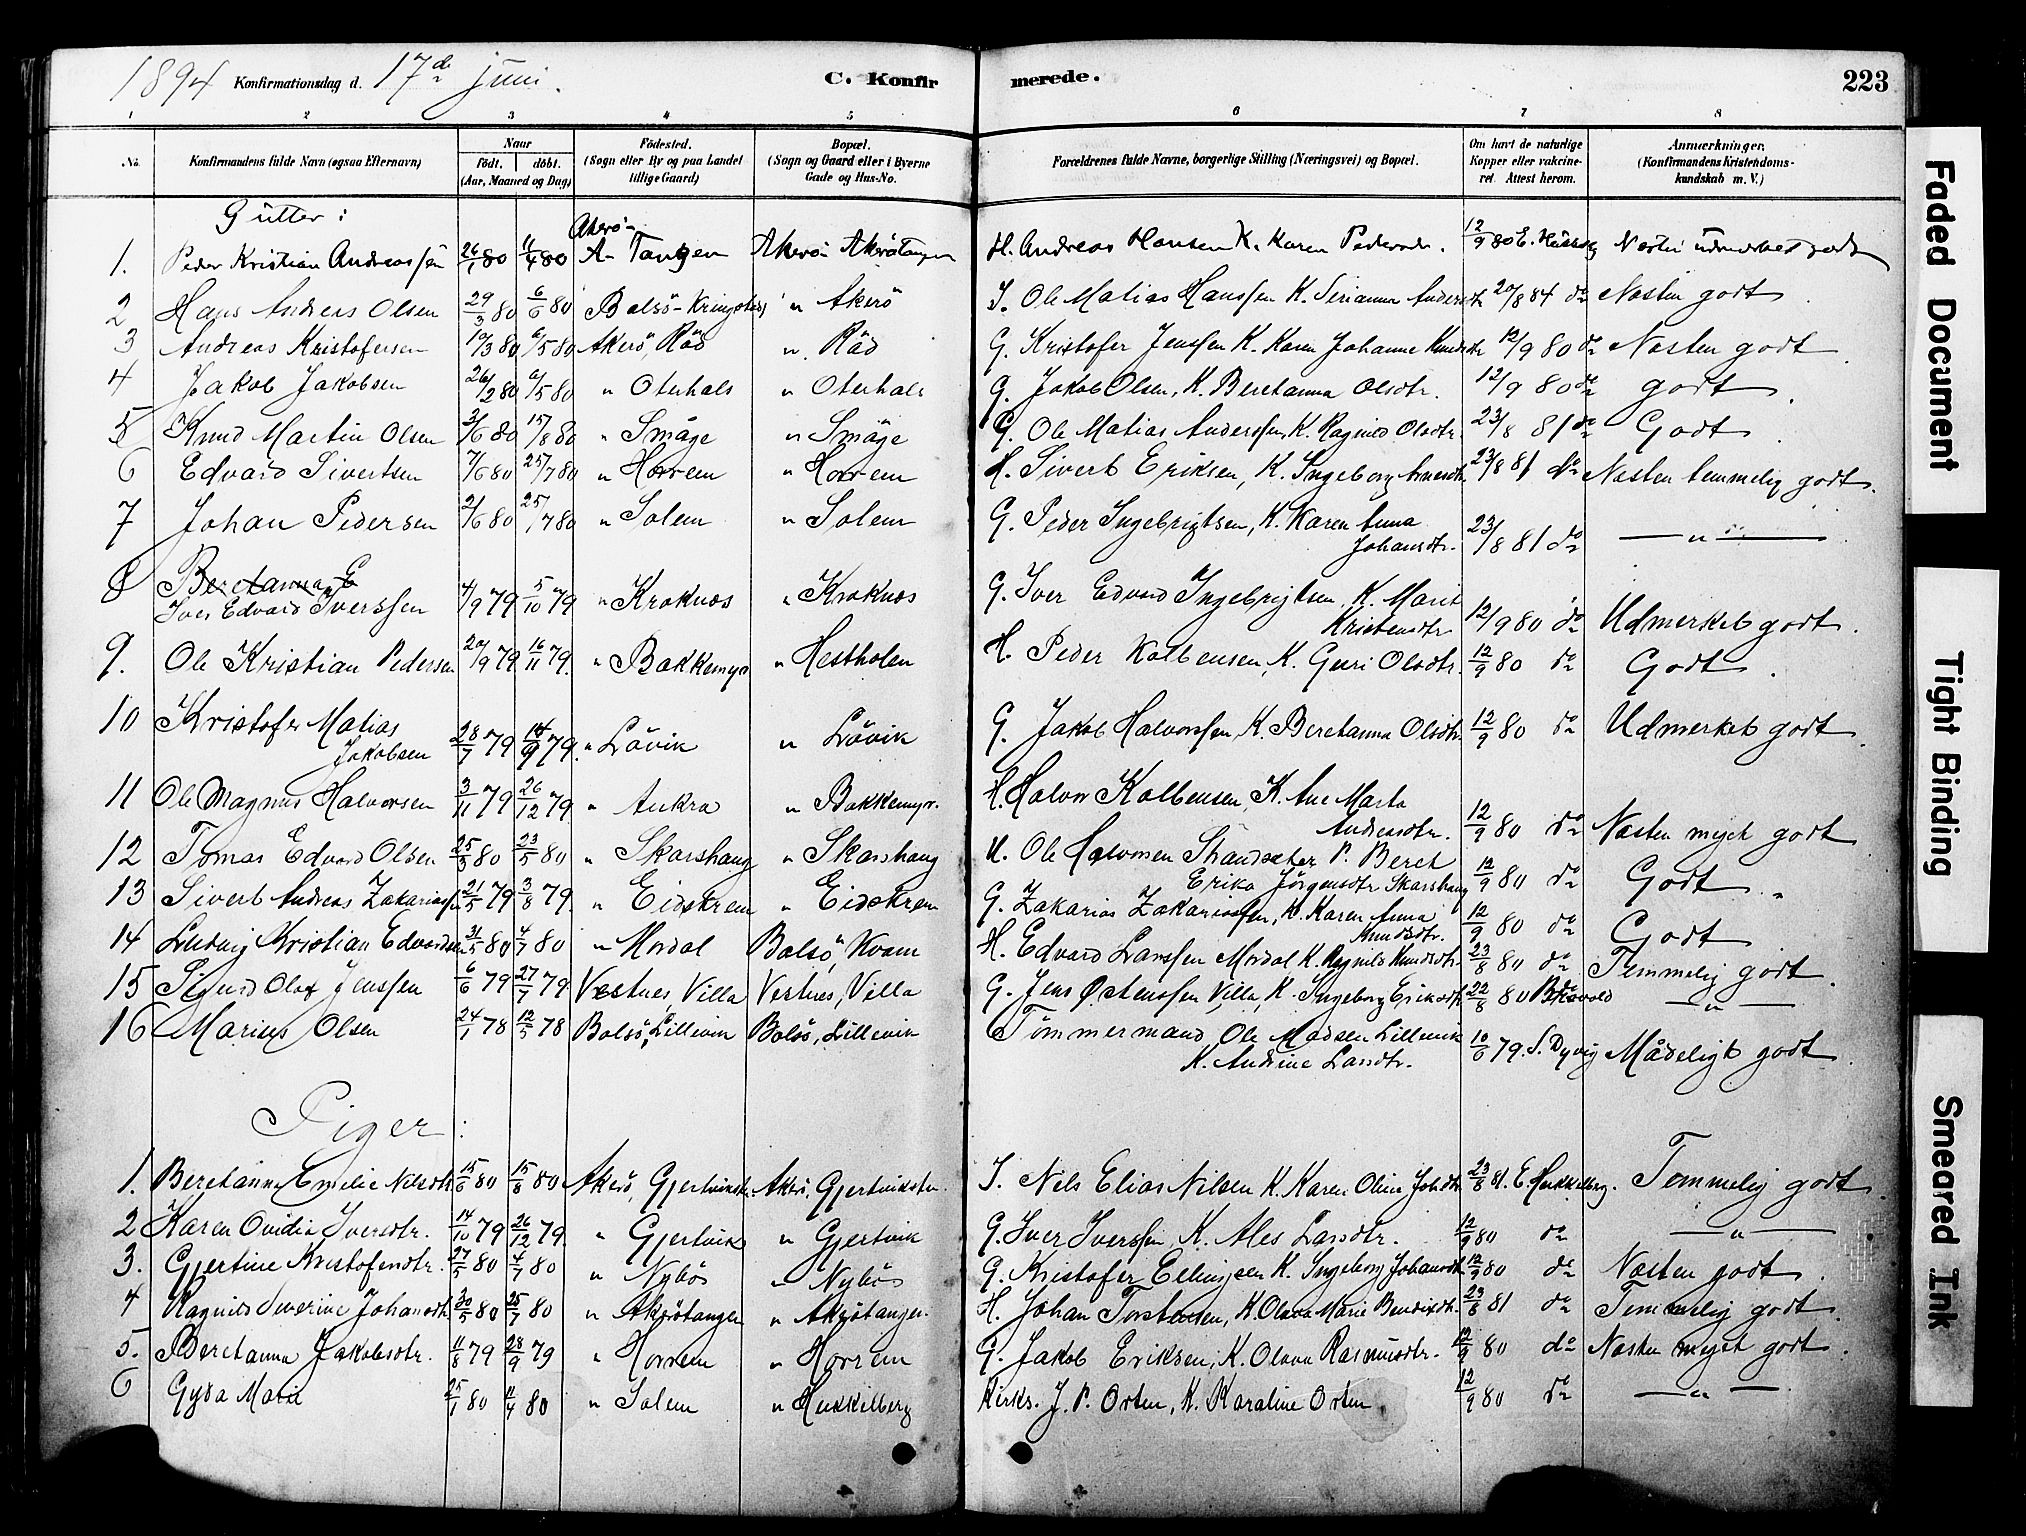 1894 Konfirmationsdag d. 17de juni. C. Konfirmerede. 223
1 2 3 4 5 6 7 8
No. Konfirmandens fulde Navn (ogsaa Efternavn) Naar født. døbt. (Aar, Maaned og Dag) Fødested. (Sogn eller By og paa Landet tillige Gaard) Bopæl. (Sogn og Gaard eller i Byerne Gade og Hus-No. Forældrenes fulde Navne, borgerlige Stilling (Næringsvei) og Bopæl. Om havt de naturlige Kopper eller vakcineret. Attest herom. Anmærkninger. (Konfirmandens Kristendomskundskab m. V.)
Gutter:
1. Peder Kristian Andreassen 26/1 80 11/4 80 Akerö A- Tangen Akerö Akerötangen H. Andreas Hansen K. Karen Pedersdr. 12/9 80 Næsten udmerket godt
2 Hans Andreas Olsen 29/3 80 6/6 80 Bolsö-Kringstad " Akerö I. Ole Matias Hanssen K. Serianna Andersdtr 20/8 84 do Næsten godt
3 Andreas Kristofersen 10/3 80 6/5 80 Akerö, Röd " Röd G. Kristofer Jenssen K. Karen Johanne Knudsdtr 12/9 80 do Næsten godt.
4 Jakob Jakobsen 26/2 80 6/5 80 " Oterhals " Oterhals G. Jakob Olsen, K. Beretanna Olsdtr. 12/9 80 do godt.
5 Knud Martin Olsen 3/6 80 15/8 80 " Småge " Småge G. Ole Matias Anderssen, K. Ragnild Olsdtr. 23/8 81 do Godt.
6 Edvard Sivertsen 7/6 80 25/7 80 " Horrem " Horrem H. Sivert Eriksen, K. Ingeborg Arnesdtr. 23/8 81 do Næsten temmelig godt.
7 Johan Pedersen 2/6 80 25/7 80 " Solem " Solem G. Peder Ingebrigtsen, K. Karen Anna Johansdtr. 23/8 81 do — " —
8 Beretanna E Iver Edvard Iverssen 4/9 79 5/10 79 " Kroknes " Kroknes G. Iver Edvard Ingebrigtsen, K. Marit Kristensdtr 12/9 80 do Udmerket godt.
9. Ole Kristian Pedersen 20/9 79 16/11 79. " Bakkemyr " Hestholen H. Peder Kolbensen, K. Guri Olsdtr. 12/9 80 do Godt.
10 Kristofer Matias Jakobsen 28/7 79 14/9 79. " Lövik " Lövik G. Jakob Halvorssen, K. Beretanna Olsdtr. 12/9 80 do Udmerket godt.
11 Ole Magnus Halvorsen 3/11 79 26/12 79. " Aukra " Bakkemyr. H. Halvor Kolbensen, K. Ane Marta Andreasdtr. 12/9 80 do Næsten myet godt
12 Tomas Edvard Olsen 25/3 80 23/5 80 " Skarshaug " Skarshaug U. Ole Halvorsen Strandsæter P. Beret Erika Jörgensdtr Skarshaug 12/9 80 do Godt.
13 Sivert Andreas Zakariassen 21/5 79 3/8 79. " Eidskrem " Eidskrem G. Zakarias Zakariassen, K. Karen Anna Knudsdtr. 12/9 80 do Godt
14 Ludvig Kristian Edvardsen 31/5 80 4/7 80 " Mordal Bolsö, Kvam H. Edvard Larssen Mordal K. Ragnild Knudsdtr. 23/8 80 do Temmelig godt.
15 Sigurd Olaf Jenssen 6/6 79 27/7 79. Vestnes, Villa Vestnes, Villa G. Jens Østenssen Villa, K. Ingeborg Eriksdtr 22/8 80 — " —
16 Marius Olsen 24/1 78 12/5 78 Bolsö, Lillevik Bolsö, Lillevik Tömmermand Ole Madsen Lillevik K. Andrine Larsdtr. 10/6 79. S. Dyvig Mådeligt godt
Piger:
1. Beretanna Emelie Nilsdtr. 15/6 80 15/8 80 Akerö, Gjertvikstr. Akerö, Gjertvikstr. I. Nils Elias Nilsen K. Karen Oline Johsdtr 23/8 81. E. Hukkelberg. Temmelig godt.
2 Karen Ovidia Iversdtr. 14/10 79 26/12 79. " Gjertvik " Gjertvik G. Iver Iverssen, K. Ales Larsdtr. 12/9 80 do — " —
3. Gjertine Kristofersdtr. 27/5 80 4/7 80 " Nybö " Nybö G. Kristofer Ellingsen K. Ingeborg Johansdtr. 12/9 80 do Næsten godt.
4 Ragnild Severine Johansdtr. 30/5 80 25/7 80 " Akerötangen " Akerötangen. H. Johan Torstensen, K. Olava Marie Bendixdtr. 23/8 81 do Temmelig godt.
5. Beretanna Jakobsdtr. 11/8 79 28/9 79 " Horrem " Horrem G. Jakob Eriksen, K. Olava Rasmusdtr. 12/9 80 do Næsten myet godt.
6 Gyda Marie 25/1 80 11/4 80 " Solem " Hukkelberg Kirks. J. P. Orten, K. Karoline Orten. 12/9 80 do — " —
Faded Document
Tight Binding
Smeared Ink